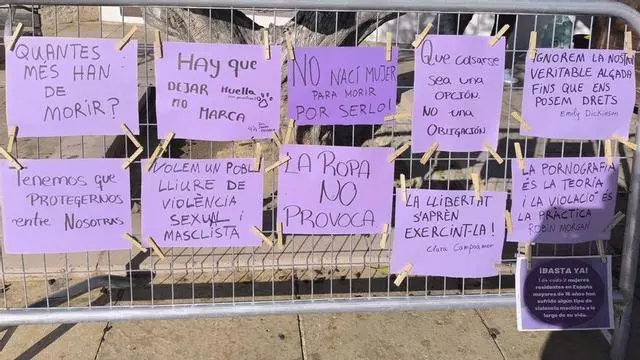 QUANTES
MÉS HAN
DE
MORIR?
HAY que
DEJAR Huella
NO MARCA
NO NACÍ MUJER
PARA MORIR
POR SERLO!
Que casarse
sea una
OPCIÓN.
NO UNA
OBLIGACIÓN
IGNOREM LA NOSTRA
VERITABLE ALÇADA
FINS QUE ENS
POSEM DRETS.
Emily Dickinson
Tenemos que
PROTEGERNOS
entre Nosotras
VOLEM UN POBLE
LLIURE DE
VIOLÈNCIA
SEXUAL i
MASCLISTA
LA ROPA
NO
PROVOCA
LA LLIBERTAT
S'APRÈN
EXERCINT-LA!
Clara Campoamor
LA PORNOGRAFIA
ÉS LA TEORIA
i LA VIOLACIÓ ÉS
LA PRÀCTICA
ROBIN MORGAN
¡BASTA YA!
1 de cada 2 mujeres
residentes en España
mayores de 16 años han
sufrido algún tipo de
violencia machista a lo
largo de su vida.